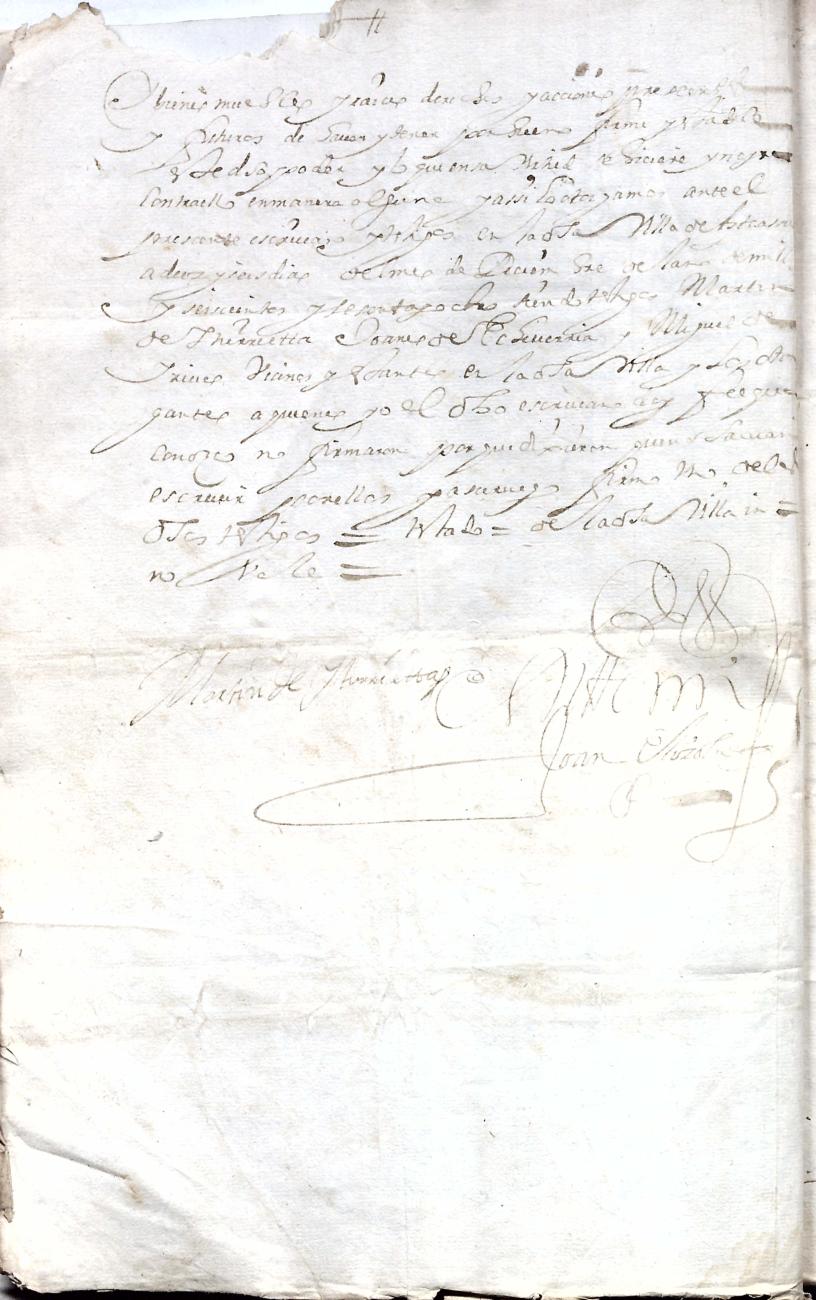 bienes muebles y raices derechos y acciones presentes
y futuros de hauer y tener por bueno firme y estable
este dho poder y lo que en su virtud se hiciere y no yr
contra ello en manera alguna y assi lo otorgamos ante el
presente escriuano y testigos en la dha Villa de
a diez y seis dias del mes de Diciembre de l año de mill
y seiscientos y sesenta y ocho siendo testigos Martin
de Yturrietta Joanes de Echeverria y Miguel de
vecinos y estantes en la dha Villa y los otor
gantes a quienes yo el dho escriuano doy fee que
conozco no firmaron porque dixieron que no sauian
escriuir por ellos y a su ruego firmo uno de los
dhos testigos = testado = de la dha Villa in =
no Vale =
Martin de Yturrietta
Ante mi
Joan